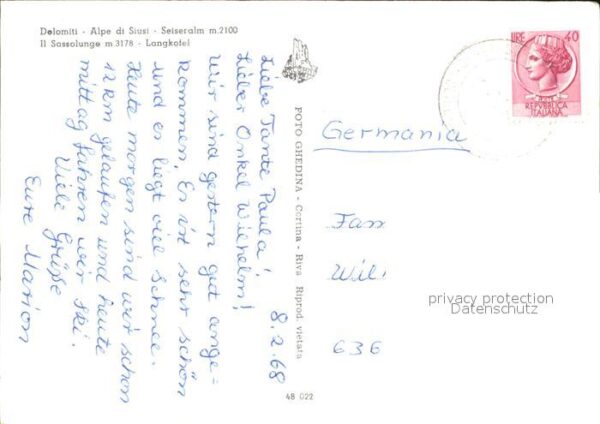 Dolomiti - Alpe di Siusi - Seiseralm m.2100
Il Sassolungo m 3178 - Langkofel
8.2.68
Liebe Tante Paula!
Lieber Onkel Wilhelm!
Wir sind gestern gut ange=
kommen. Es ist sehr schön
und es liegt viel Schnee.
Heute morgen sind wir schon
12 km gelaufen und heute
mittag fahren wir Ski.
Viele Grüße
Eure Marion
FOTO GHEDINA - Cortina - Riva Riprod. vietata
48 022
LIRE 40
REPVBBLICA
ITALIANA
Germania
Fam
Wil
636
privacy protection
Datenschutz